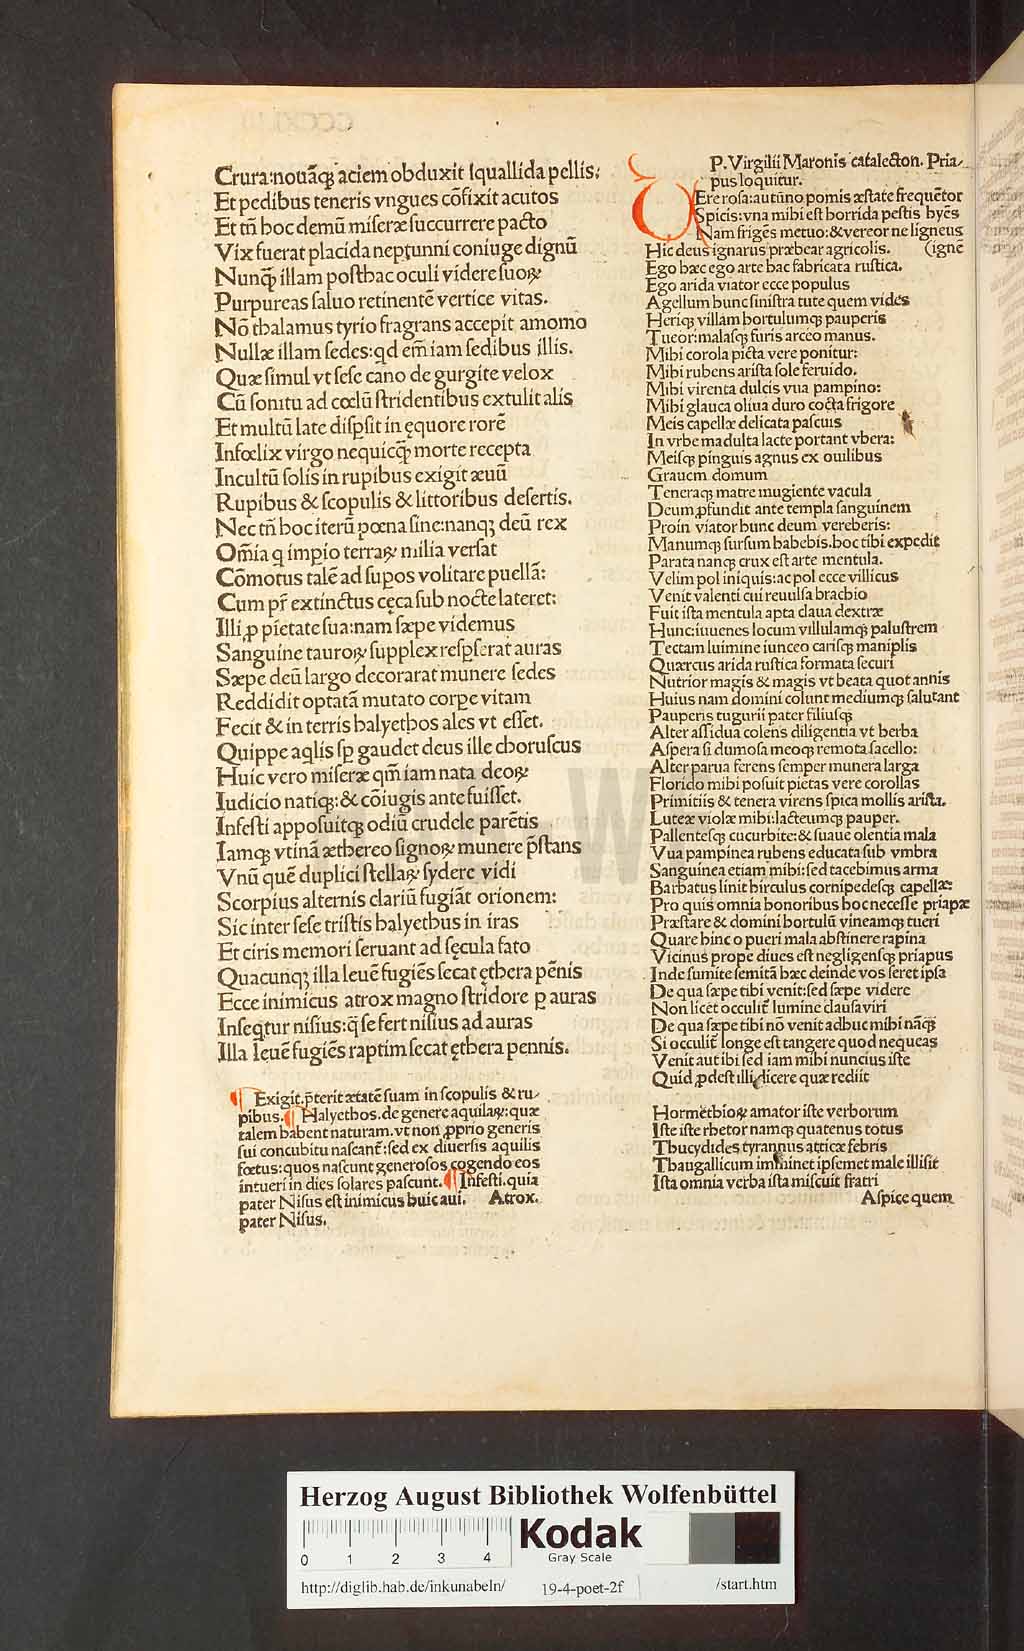 Crura:nouãq; aciem obduxit squallida pellis:
Et pedibus teneris vngues cõfixit acutos
Et tñ hoc demũ miseræ succurrere pacto
Vix fuerat placida neptunni coniuge dignũ
Nunq̃ illam posthac oculi videre suoꝝ
Purpureas saluo retinentẽ vertice vitas.
Nõ thalamus tyrio fragrans accepit amomo
Nullæ illam sedes:qd em̃ iam sedibus illis.
Quæ simul vt sese cano de gurgite velox
Cũ sonitu ad cœlũ stridentibus extulit alis
Et multũ late dispsit in ęquore rorẽ
Infœlix virgo nequicq̃ morte recepta
Incultũ solis in rupibus exigit æuũ
Rupibus & scopulis & littoribus desertis.
Nec tñ hoc iterũ pœna sine:nanq; deũ rex
Om̃ia q impio terraꝝ milia versat
Cõmotus talẽ ad supos volitare puellã:
Cum pr̃ extinctus cęca sub nocte lateret:
Illi ꝓ pietate sua:nam sæpe videmus
Sanguine tauroꝝ supplex respserat auras
Sæpe deũ largo decorarat munere sedes
Reddidit optatã mutato corpe vitam
Fecit & in terris halyethos ales vt esset.
Quippe aqlis sp̃ gaudet deus ille choruscus
Huic vero miseræ qm̃ iam nata deoꝝ
Iudicio natiq;:& cõiugis ante fuisset.
Infesti apposuitq; odiũ crudele parẽtis
Iamq; vtinã æthereo signoꝝ munere p̃stans
Vnũ quẽ duplici stellaꝝ sydere vidi
Scorpius alternis clariũ fugiãt orionem:
Sic inter sese tristis halyethus in iras
Et ciris memori seruant ad sęcula fato
Quacunq; illa leuẽ fugiẽs secat ęthera pẽnis
Ecce inimicus atrox magno stridore p auras
Inseqtur nisius:q̃ se fert nisius ad auras
Illa leuẽ fugiẽs raptim secat ęthera pennis.
¶ Exigit.p̃terit ætatẽ suam in scopulis & ru-
pibus. ¶ Halyethos.de genere aquilaꝝ:quæ
talem habent naturam.vt non ꝓprio generis
sui concubitu nascant̃:sed ex diuersis aquilis
fœtus:quos nascunt generosos cogendo eos
intueri in dies solares pascunt. ¶ Infesti.quia
pater Nisus est inimicus huic aui. Atrox.
pater Nisus.
P.Virgilii Maronis catalecton. Pria-
pus loquitur.
VEre rosa:autũno pomis æstate frequẽtor
Spicis:vna mihi est horrida pestis hyẽs
Nam frigẽs metuo:& vereor ne ligneus
Hic deus ignarus præbear agricolis. (ignẽ
Ego hæc ego arte hac fabricata rustica.
Ego arida viator ecce populus
Agellum hunc sinistra tute quem vides
Heriq; villam hortulumq; pauperis
Tueor:malasq; furis arceo manus.
Mihi corola picta vere ponitur:
Mihi rubens arista sole feruido.
Mihi virenta dulcis vua pampino:
Mihi glauca oliua duro cocta frigore
Meis capellæ delicata pascuis
In vrbe madulta lacte portant vbera:
Meisq; pinguis agnus ex ouilibus
Grauem domum
Teneraq; matre mugiente vacula
Deum ꝓfundit ante templa sanguinem
Proin viator hunc deum vereberis:
Manumq; sursum habebis.hoc tibi expedit
Parata nanq; crux est arte mentula.
Velim pol iniquis:ac pol ecce villicus
Venit valenti cui reuulsa brachio
Fuit ista mentula apta claua dextræ
Hunc:iuuenes locum villulamq; palustrem
Tectam luimine iunceo carisq; maniplis
Quærcus arida rustica formata securi
Nutrior magis & magis vt beata quot annis
Huius nam domini colunt mediumq; salutant
Pauperis tugurii pater filiusq;
Alter assidua colens diligentia vt herba
Aspera si dumosa meoq; remota sacello:
Alter parua ferens semper munera larga
Florido mihi posuit pietas vere corollas
Primitiis & tenera virens spica mollis arista.
Luteæ violæ mihi:lacteumq; pauper.
Pallentesq; cucurbite:& suaue olentia mala
Vua pampinea rubens educata sub vmbra
Sanguinea etiam mihi:sed tacebimus arma
Barbatus linit hirculus cornipedesq; capellæ:
Pro quis omnia honoribus hoc necesse priapæ
Præstare & domini hortulũ vineamq; tueri
Quare hinc o pueri mala abstinere rapina
Vicinus prope diues est negligensq; priapus
Inde sumite semitã hæc deinde vos feret ipsa
De qua sæpe tibi venit:sed sæpe videre
Non licet occulit̃ lumine clausa viri
De qua sæpe tibi nõ venit adhuc mihi nãq;
Si occulit̃ longe est tangere quod nequeas
Venit aut ibi sed iam mihi nuncius iste
Quid ꝓdest illi dicere quæ rediit
Hormetbioꝝ amator iste verborum
Iste iste rhetor namq; quatenus totus
Thucydides tyrannus atticæ febris
Thaugallicum imminet ipsemet male illisit
Ista omnia verba ista miscuit fratri
Aspice quem
Herzog August Bibliothek Wolfenbüttel
0 1 2 3 4
Kodak
Gray Scale
http://diglib.hab.de/inkunabeln/ 19-4-poet-2f /start.htm